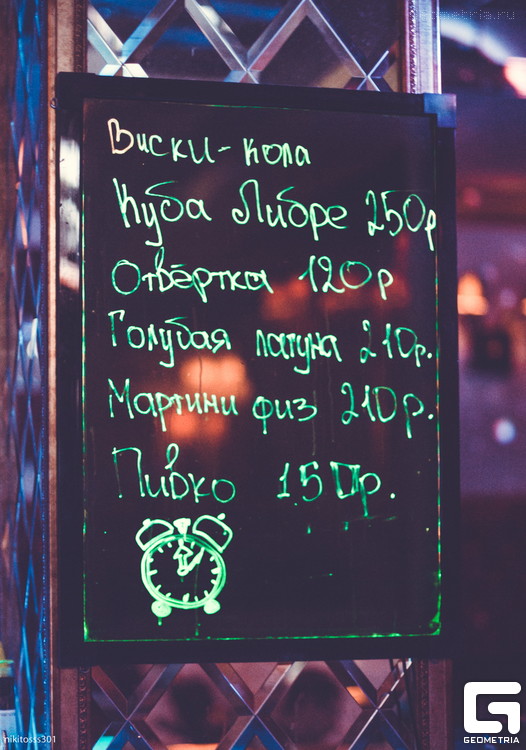 geometria.ru
Виски-кола
Куба Либре 250р
Отвёртка 120р
Голубая лагуна 210р.
Мартини физ 210р.
Пивко 150р.
nikitosss301
GEOMETRIA